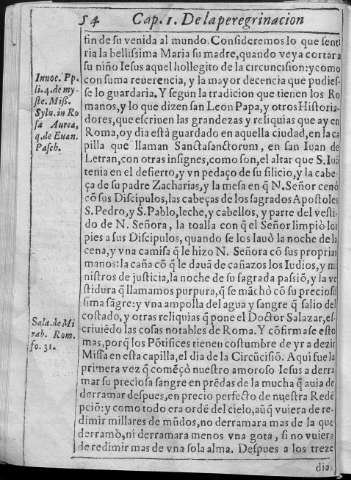 54 Cap. 1. De la peregrinacion
fin de su venida al mundo. Consideremos lo que senti
ria la bellissima Maria su madre, quando veya cortar a
su niño Iesus aquel hollegito de la circuncision: y como
con suma reuerencia, y la mayor decencia que pudies-
se lo guardaria. Y segun la tradicion que tienen los Ro
manos, y lo que dizen san Leon Papa, y otros Historia-
dores, que escriuen las grandezas y reliquias que ay en
Roma, oy dia està guardado en aquella ciudad, en la ca
pilla que llaman Sanctasanctorum, en san Iuan de
Letran, con otras insignes, como son, el altar que S. Iuã
tenia en el desierto, y vn pedaço de su silicio, y la cabe
ça de su padre Zacharias, y la mesa en q̃ N. Señor cenò
cõ sus Discipulos, las cabeças de los sagrados Apostoles
S. Pedro, y S. Pablo, leche, y cabellos, y parte del vesti-
do de N. Señora, la toalla con q̃ el Señor limpiò los
pies a sus Discipulos, quando se los lauò la noche de la
cena, y vna camisa q̃ le hizo N. Señora cõ sus proprias
manos: la caña cõ q̃ le dauã de cañazos los Iudios, y mi
nistros de justicia, la noche de su sagrada passiõ, y la ve
stidura q̃ llamamos purpura, q̃ se mãchò cõ su preciosis
sima sãgre: y vna ampolla del agua y sangre q̃ salio del
costado, y otras reliquias q̃ pone el Doctor Salazar, es-
criuiẽdo las cosas notables de Roma. Y cõfirmase esto
mas, porq̃ los Põtifices tienen costumbre de yr a dezir
Missa en esta capilla, el dia de la Circũcisiõ. Aqui fue la
primera vez q̃ comẽçò nuestro amoroso Iesus a derra
mar su preciosa sangre en prẽdas de la mucha q̃ auia de
derramar despues, en precio perfecto de nuestra Redẽ
pciõ: y como todo era ordẽ del cielo, aũq̃ vuiera de re-
dimir millares de mũdos, no derramara mas de la que
derramò, ni derramara menos vna gota, si no vuiera
de redimir mas de vna sola alma. Despues a los treze
dia
Inuoc. Pp.
li. 4. de my-
ste. Miss.
Sylu. in Ro
sa Aurea,
q. de Euan.
Pasch.
Sala. de Mi
rab. Rom.
fo. 31.